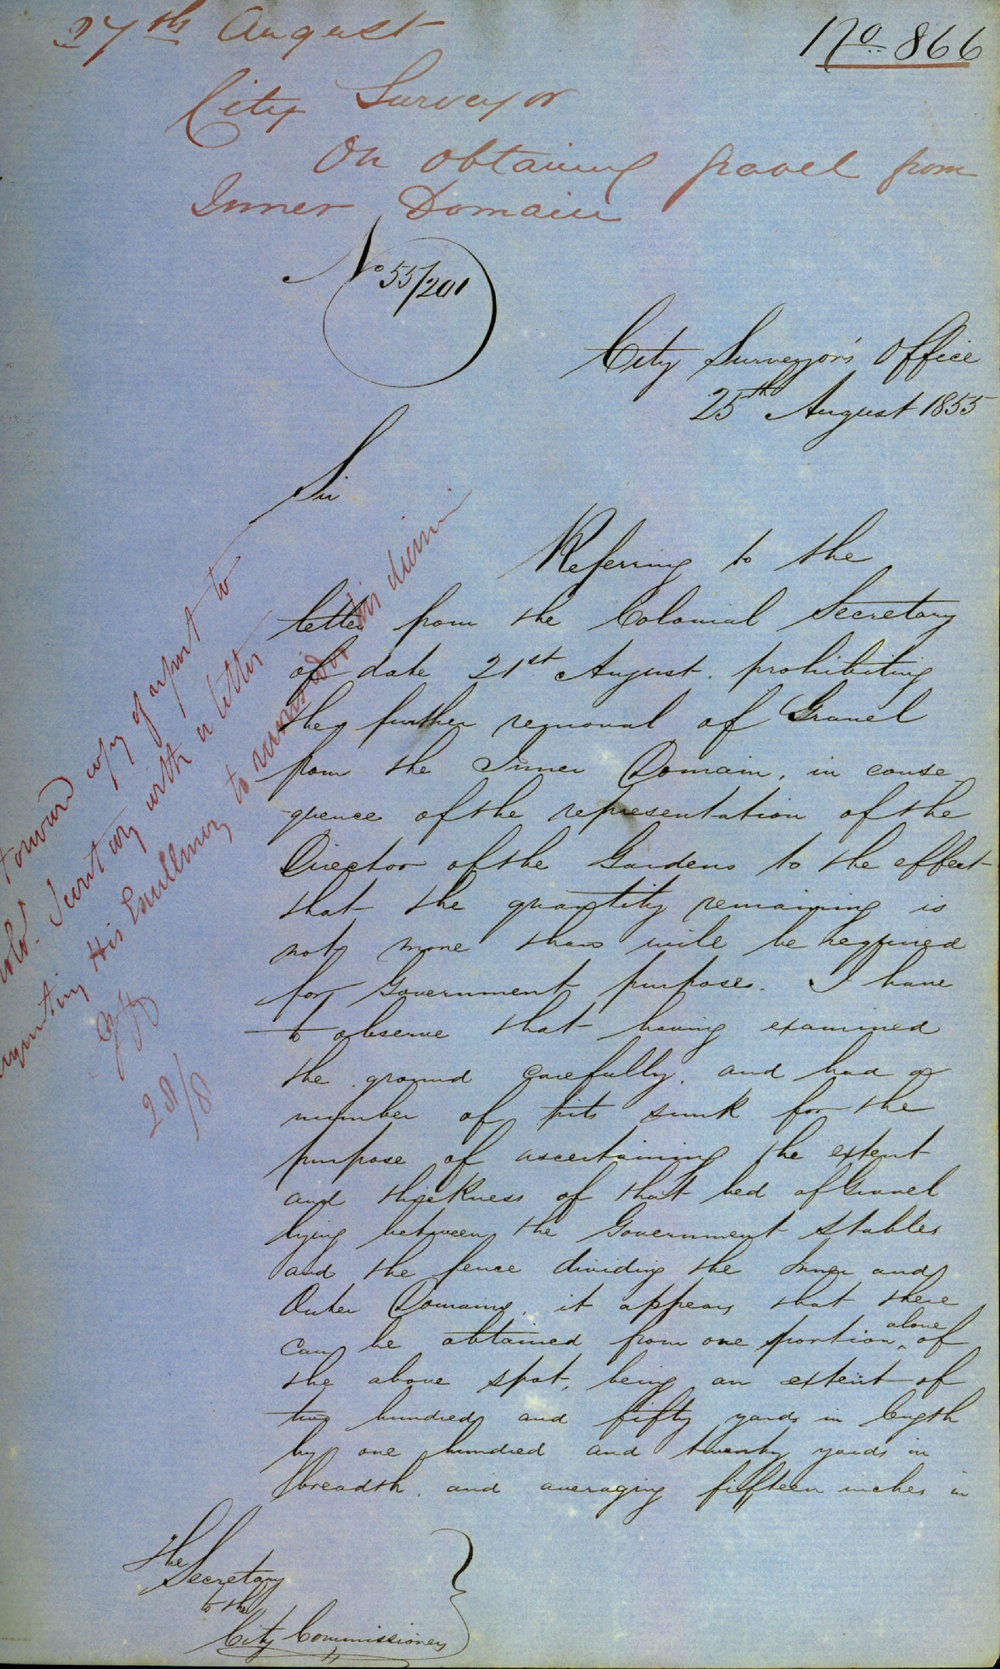 27th August
No. 866
City Surveyor
On obtaining gravel from
Inner Domain
No 55/201
City Surveyor's Office
25th August 1855
Sir
Referring to the
letter from the Colonial Secretary
of date 21st August. prohibiting
the further removal of Gravel
from the Inner Domain, in conse-
quence of the representation of the
Director of the Gardens to the effect
that the quantity remaining is
not more than will be required
for Government purposes. I have
to observe that having examined
the ground carefully, and had a
number of pits sunk for the
purpose of ascertaining the extent
and thickness of that bed of Gravel
lying between the Government Stables
and the fence dividing the Inner and
Outer Domains, it appears that there
can be obtained from one portion alone of
the above spot, being an extent of
two hundred and fifty yards in length
by one hundred and twenty yards in
breadth, and averaging fifteen inches in
The Secretary
to the
City Commissioners
Forward copy of report to
Col. Secretary with a letter
requesting His Excellency to reconsider his decision
28/8